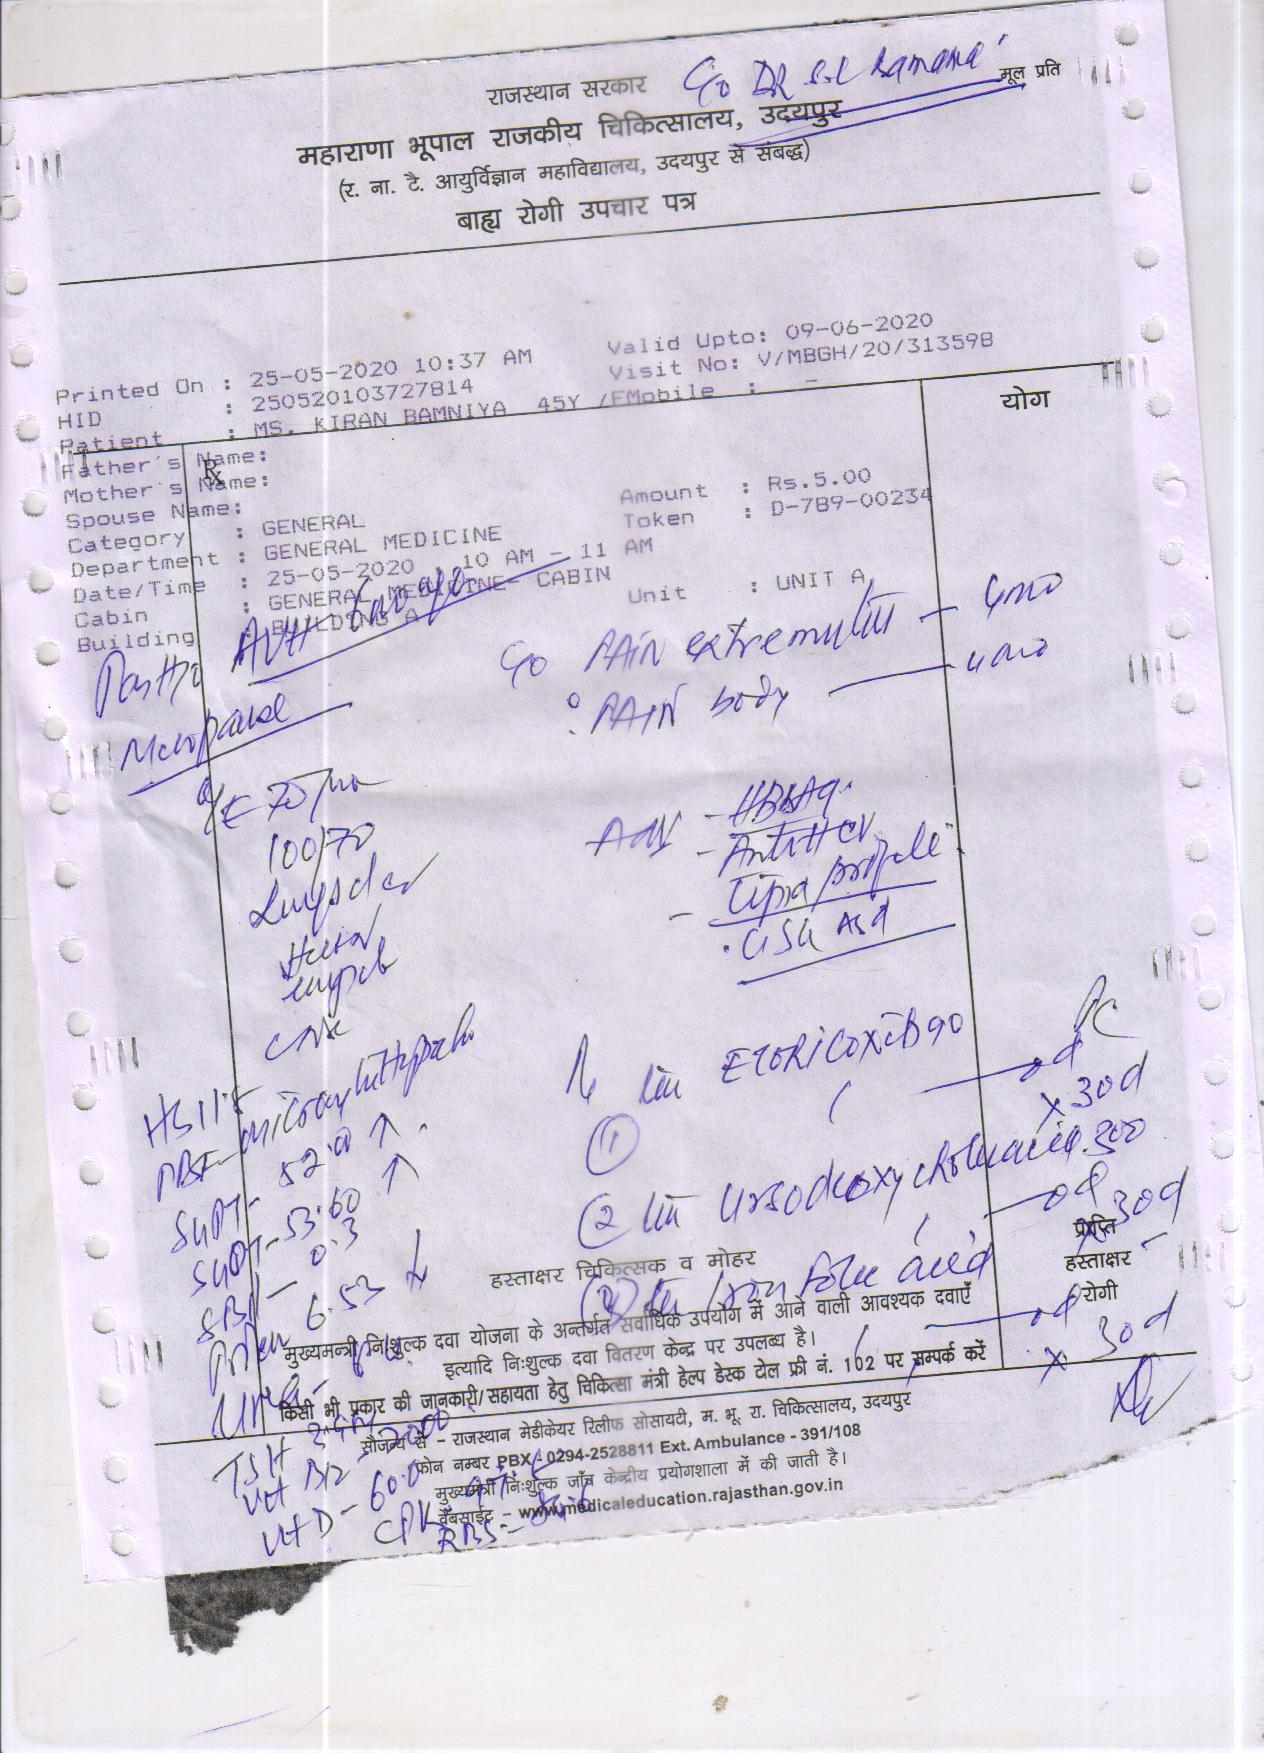 राजस्थान सरकार
C/o DR S.L Bamania
मूल प्रति
महाराणा भूपाल राजकीय चिकित्सालय, उदयपुर
(र. ना. टै. आयुर्विज्ञान महाविद्यालय, उदयपुर से संबद्ध)
बाह्य रोगी उपचार पत्र
Printed On : 25-05-2020 10:37 AM Valid Upto: 09-06-2020
HID : 250520103727814 Visit No: V/MBGH/20/313598
Patient : MS. KIRAN BAMNIYA 45Y /FMobile : -
योग
Father's Name:
Rx
Mother's Name:
Spouse Name: Amount : Rs.5.00
Category : GENERAL Token : D-789-00234
Department : GENERAL MEDICINE
Date/Time : 25-05-2020 , 10 AM - 11 AM
Cabin : GENERAL MEDICINE- CABIN Unit : UNIT A
Building : BUILDING A
C/o PAIN extremities - 4mo
PAIN body - 4mo
Menopause
O/E 70/m
100/70
Adv - HBsAg
- Anti HCV
Lipid profile
Heart
CNS
Rx
① ETORICOXIB 90
od
x 30d
② Ursodeoxycholic acid 300
od
x 30d
③ Iron folic acid
od
x 30d
Hb 11.5
PBF - microcytic hypoch
SGOT - 52.00 ↑
SGPT - 53.60 ↑
SBil - 0.3
Protein 6.53
Urea -
TSH
Vit B12
Vit D - 60.0
CPK
RBS -
हस्ताक्षर चिकित्सक व मोहर
प्राप्ति
हस्ताक्षर
रोगी
मुख्यमन्त्री निःशुल्क दवा योजना के अन्तर्गत सर्वाधिक उपयोग में आने वाली आवश्यक दवाएँ
इत्यादि निःशुल्क दवा वितरण केन्द्र पर उपलब्ध है।
किसी भी प्रकार की जानकारी/सहायता हेतु चिकित्सा मंत्री हेल्प डेस्क टोल फ्री नं. 102 पर सम्पर्क करें
सौजन्य से - राजस्थान मेडीकेयर रिलीफ सोसायटी, म. भू. रा. चिकित्सालय, उदयपुर
फोन नम्बर PBX - 0294-2528811 Ext. Ambulance - 391/108
मुख्यमंत्री निःशुल्क जाँच केन्द्रीय प्रयोगशाला में की जाती है।
वैबसाईट - www.medicaleducation.rajasthan.gov.in